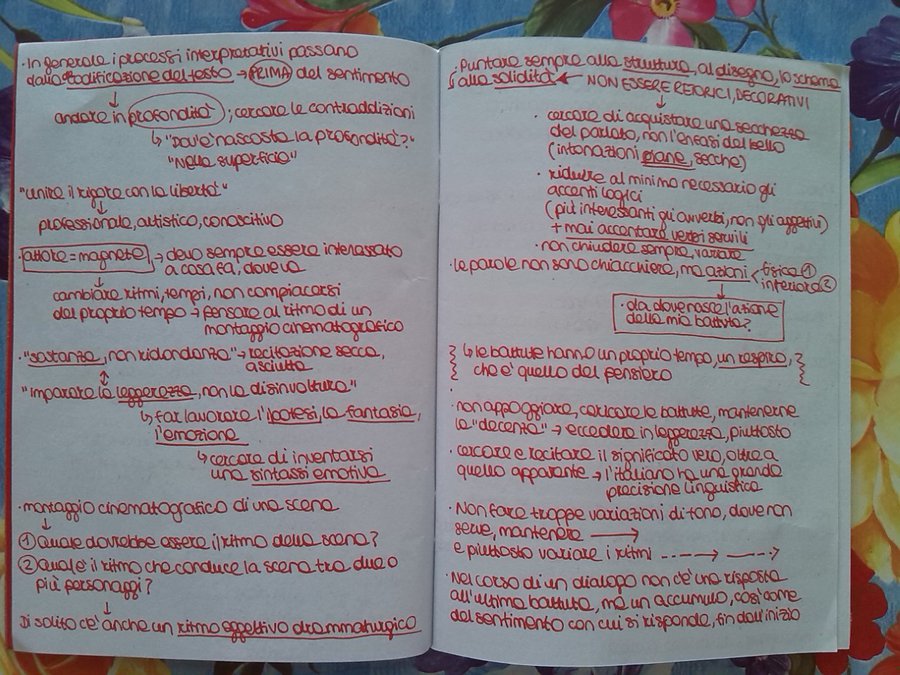 · In generale i processi interpretativi passano
dalla codificazione del testo → PRIMA del sentimento
↓
andare in profondità ; cercare le contraddizioni
↳ "Dov'è nascosta la profondità?"
"Nella superficie"
"unire il rigore con la libertà"
↓
professionale, artistico, conoscitivo
· attore = magnete → devo sempre essere interessato
a cosa fa, dove va
↓
cambiare ritmi, tempi, non compiacersi
del proprio tempo → pensare al ritmo di un
montaggio cinematografico
· "sostanza, non ridondanza" → recitazione secca,
asciutta
↕
"Imparate la leggerezza, non la disinvoltura"
↳ far lavorare l'ipotesi, la fantasia,
l'emozione
↳ cercare di inventarsi
una sintassi emotiva
· montaggio cinematografico di una scena
↓
① Quale dovrebbe essere il ritmo della scena?
② Qual è il ritmo che conduce la scena tra due o
più personaggi?
↓
Di solito c'è anche un ritmo oggettivo drammaturgico
· Puntare sempre alla struttura, al disegno, lo schema
alla solidità ← NON ESSERE RETORICI, DECORATIVI
↓
· cercare di acquistare una secchezza
del parlato, non l'enfasi del bello
(intonazioni piane, secche)
· ridurre al minimo necessario gli
accenti logici
(più interessanti gli avverbi, non gli aggettivi)
+ mai accentare verbi servili
· non chiudere sempre, variare
· le parole non sono chiacchiere, ma azioni < fisica ①
interiore ②
↓
· da dove nasce l'azione
della mia battuta?
↳ le battute hanno un proprio tempo, un respiro,
che è quello del pensiero
·
non appoggiare, caricare le battute, mantenerne
la "decenza" → eccedere in leggerezza, piuttosto
· cercare e recitare il significato vero, oltre a
quello apparente → l'italiano ha una grande
precisione linguistica
· Non fare troppe variazioni di tono, dove non
serve, mantenere →
e piuttosto variare i ritmi ---→ --→
· Nel corso di un dialogo non c'è una risposta
all'ultima battuta, ma un accumulo, così come
del sentimento con cui si risponde, fin dall'inizio